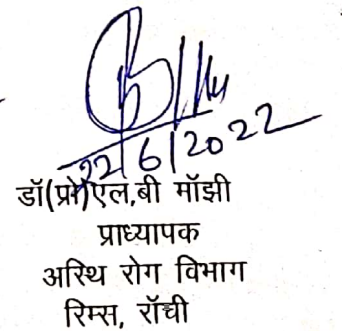 22/6/2022
डॉ(प्रो)एल,बी मॉझी
प्राध्यापक
अस्थि रोग विभाग
रिम्स, रॉची